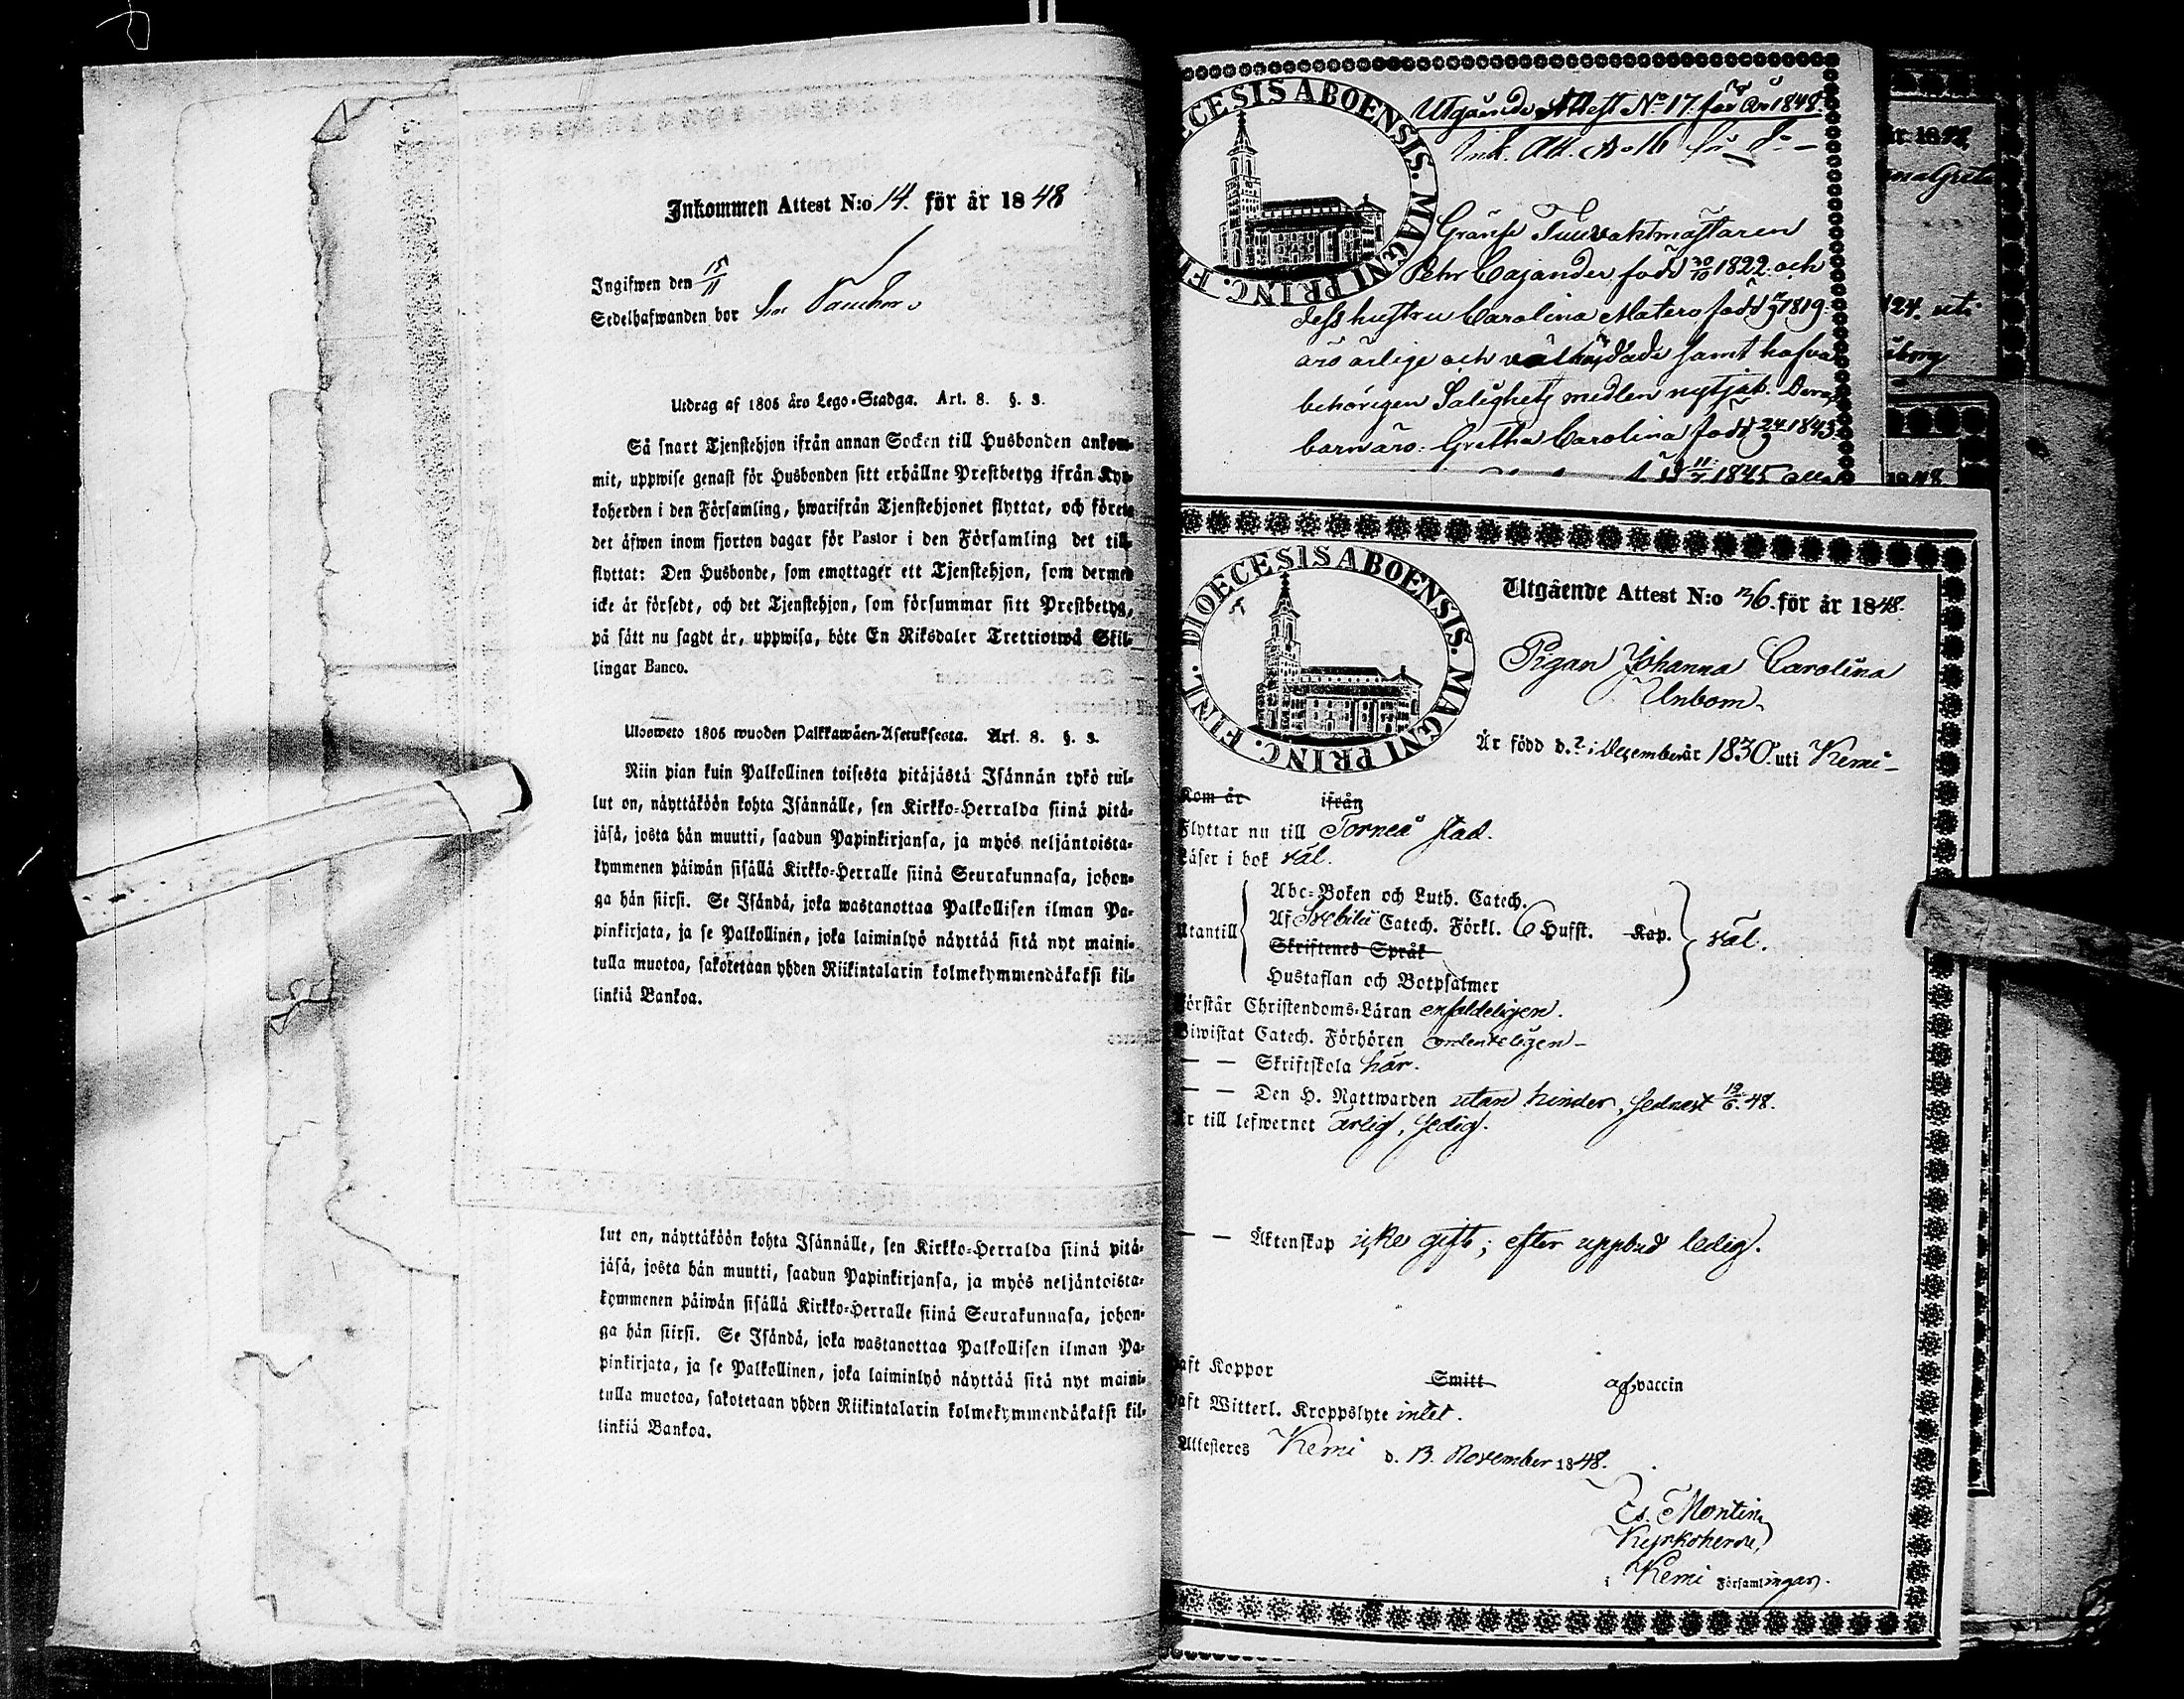 Inkommen Attest N:o 14. för år 1848
Ingifwen den 15/11
Sedelhafwanden bor hos
Utdrag af 1805 års Lego-Stadga. Art. 8. §. 3.
Så snart Tjenstehjon ifrån annan Socken till Husbonden ankom-
mit, uppwise genast för Husbonden sitt erhållne Prestbetyg ifrån Kyr-
koherden i den Församling, hwarifrån Tjenstehjonet flyttat, och förete
det äfwen inom fjorton dagar för Pastor i den Församling det till-
flyttat: Den Husbonde, som emottager ett Tjenstehjon, som dermed
icke är försedt, och det Tjenstehjon, som försummar sitt Prestbetyg,
på sätt nu sagdt är, uppwisa, böte En Riksdaler Trettiotwå Skil-
lingar Banco.
Ulosweto 1805 wuoden Palkkawäen-Asetuksesta. Art. 8. §. 3.
Niin pian kuin Palkollinen toisesta pitäjästä Isännän tykö tul-
lut on, näyttäköön kohta Isännälle, sen Kirkko-Herralda siinä pitä-
jäsä, josta hän muutti, saadun Papinkirjansa, ja myös neljäntoista-
kymmenen päiwän sisällä Kirkko-Herralle siinä Seurakunnasa, johon-
ga hän siirsi. Se Isändä, joka wastanottaa Palkollisen ilman Pa-
pinkirjata, ja se Palkollinen, joka laiminlyö näyttää sitä nyt maini-
tulla muotoa, sakotetaan yhden Riikintalarin kolmekymmendäkaksi kil-
linkiä Bankoa.
lut on, näyttäköön kohta Isännälle, sen Kirkko-Herralda siinä pitä-
jäsä, josta hän muutti, saadun Papinkirjansa, ja myös neljäntoista-
kymmenen päiwän sisällä Kirkko-Herralle siinä Seurakunnasa, johon-
ga hän siirsi. Se Isändä, joka wastanottaa Palkollisen ilman Pa-
pinkirjata, ja se Palkollinen, joka laiminlyö näyttää sitä nyt maini-
tulla muotoa, sakotetaan yhden Riikintalarin kolmekymmendäkaksi kil-
linkiä Bankoa.
DIOECESIS ABOENSIS. MAGNI PRINC. FINL.
Utgående Attest No 17. för År 1848
Ink. Att. No 16 för d:o
Gräns Tullvaktmästaren
Pehr Cajander född 30/10 1822. och
dess hustru Carolina Matero född 1819.
äro ärlige och välfrejdade samt hafva
behörigen Salighets medlen nyttjat. Deras
barn äro: Gretha Carolina född 24/9 1843.
11 1845
DIOECESIS ABOENSIS. MAGNI PRINC. FINL.
Utgående Attest N:o 36. för år 1848.
Pigan Johanna Carolina
Unbom
Är född d. ? i December år 1830. uti Kemi
Kom år ifrån
Flyttar nu till Torneå stad.
Läser i bok väl.
Utantill
Abc-Boken och Luth. Catech.
Af Svebilii Catech. Förkl. 6 Hufst. Kap.
Skriftenes Språk
Hustaflan och Botpsalmer
väl.
Förstår Christendoms-Läran enfaldeligen.
Biwistat Catech. Förhören ordenteligen
— — Skriftskola här.
— — Den H. Nattwarden utan hinder, sednast 19/6 48.
Är till lefwernet ärlig, sedig.
— — Äktenskap icke gift; efter uppbud ledig.
Haft Koppor Smitt af vaccin
Haft Witterl. Kroppslyte intet.
Attesteres Kemi d. 13. November 1848.
Es. Montin
Kyrkoherde
i Kemi Församlingar.